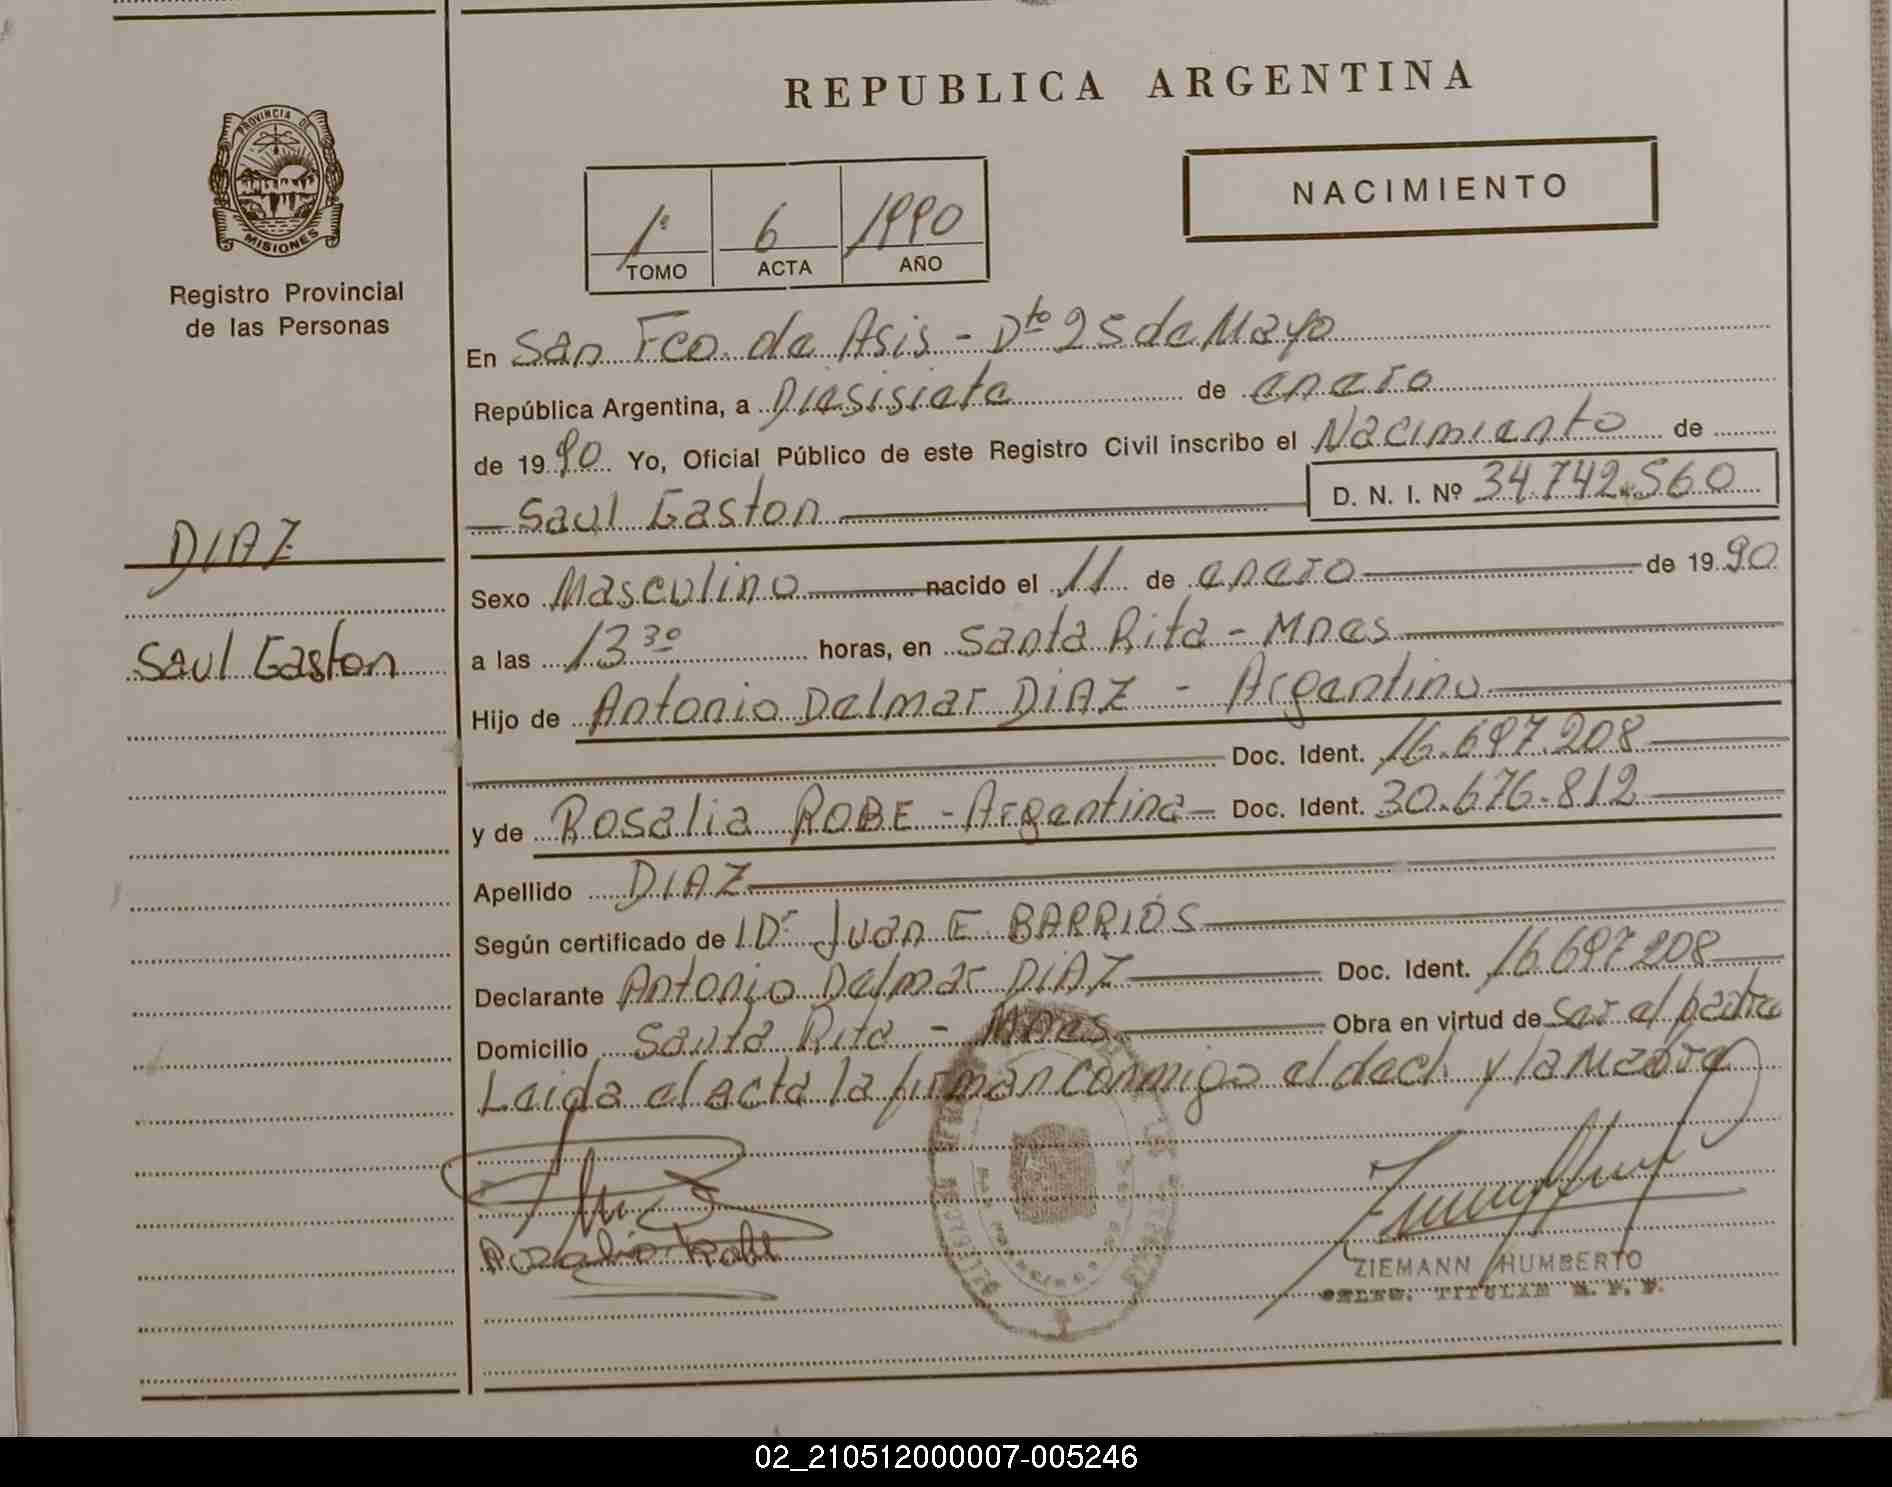 REPUBLICA ARGENTINA
PROVINCIA DE
MISIONES
Registro Provincial
de las Personas
1º 6 1990
TOMO ACTA AÑO
NACIMIENTO
En San Fco. de Asis - Dto 25 de Mayo
República Argentina, a Diesisiete de enero
de 1990 Yo, Oficial Público de este Registro Civil inscribo el Nacimiento de
Saul Gaston D. N. I. Nº 34.742.560
DIAZ
Saul Gaston
Sexo Masculino nacido el 11 de enero de 1990
a las 13 30 horas, en Santa Rita - Mnes
Hijo de Antonio Delmar DIAZ - Argentino
Doc. Ident. 16.697.208
y de Rosalia ROBE - Argentina - Doc. Ident. 30.676.812
Apellido DIAZ
Según certificado de Dr Juan E. BARRIOS
Declarante Antonio Delmar DIAZ Doc. Ident. 16.697.208
Domicilio Santa Rita - Mnes Obra en virtud de ser el padre
Leida el acta la firman conmigo el decl. y la Madre
Rozalia Robe
ZIEMANN HUMBERTO
TITULAR R. P. P.
02_210512000007-005246